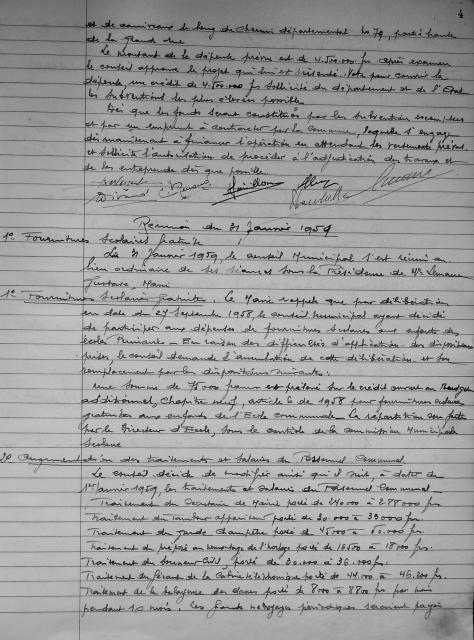 4
et de caniveaux le long du chemin départemental No 79, partie haute
de la Grand rue
Le montant de la dépense prévue est de 4.500.000 frs après examen
le conseil approuve le projet qui lui est présenté. Vote pour couvrir la
dépense, un crédit de 4.500.000 frs sollicite du département et de l'Etat
les subventions les plus élevées possibles
Dès que les fonds seront constitués par les subventions escomptées
et par un emprunt à contracter par la commune, laquelle s'engage
dès maintenant à financer l'opération en attendant les versements prévus.
et sollicite l'autorisation de procéder à l'adjudication des travaux et
de les entreprendre dès que possible
Réunion du 31 Janvier 1959
1° Fournitures Scolaires gratuites
Le 31 Janvier 1959, le conseil Municipal s'est réuni au
lieu ordinaire de ses séances sous la Présidence de Mr
Gustave, Maire
1° Fournitures Scolaires gratuites. Le Maire rappelle que par délibération
en date du 27 Septembre 1958, le conseil municipal ayant décidé
de participer aux dépenses de fournitures scolaires aux enfants des
écoles Primaires - En raison des difficultés d'application des dispositions
prises, le conseil demande l'annulation de cette délibération et son
remplacement par les dispositions suivantes:
une somme de 75000 francs est prélevée sur le crédit ouvert au Budget
additionnel, chapitre neuf, article 6 de 1958 pour fournitures scolaires
gratuites aux enfants de l'Ecole communale - La répartition sera faite
par le Directeur d'Ecole, sous le contrôle de la commission Municipale
Scolaire
2° Augmentation des traitements et salaires du Personnel Communal
Le conseil décide de modifier ainsi qu'il suit, à dater du
1er Janvier 1959, les traitements et salaires du Personnel Communal -
Traitement du Secrétaire de Mairie porté de 240000 à 288000 frs
Traitement du Tambour appariteur porté de 30.000 à 33000 frs
Traitement du Garde Champêtre porté de 45000 à 50.000 frs
Traitement du préposé au remontage de l'horloge porté de 16500 à 18000 frs.
Traitement du Sonneur Civil, porté de 30.000 à 36.000 frs.
Traitement du Gérant de la Cabine téléphonique porté de 44.000 à 45.200 frs
Traitement de la balayeuse des classes porté de 8000 à 8800 frs par mois
pendant 10 mois. Les grands nettoyages périodiques seraient payés